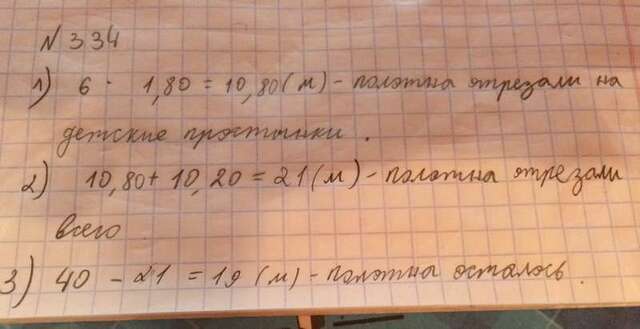 N 334
1) 6 · 1,80 = 10,80(м) - полотна отрезали на
детские простынки .
2) 10,80 + 10,20 = 21(м) - полотна отрезали
всего
3) 40 - 21 = 19 (м) - полотна осталось.